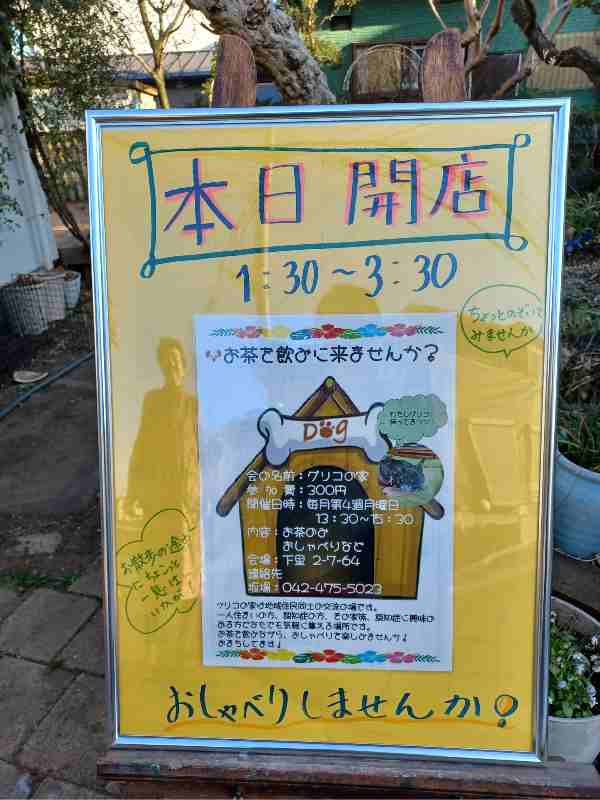 本日開店
1:30～3:30
ちょっとのぞいて
みませんか
お茶を飲みに来ませんか？
Dog
わたしグリコ
待ってまーす
会の名前：グリコの家
参加費：300円
開催日時：毎月第4週月曜日
13：30～15：30
内容：お茶のみ
おしゃべりなど
会場：下里 2-7-64
連絡先
坂場：042-475-5023
グリコの家は地域住民同士の交流の場です。
一人住まいの方、認知症の方、その家族、認知症に興味の
ある方どなたでも気軽に集える場所です。
お茶を飲みながら、おしゃべりを楽しみませんか？
おまちしてます♪
お散歩の途中
にちょっと
一息は
いかが？
おしゃべりしませんか？